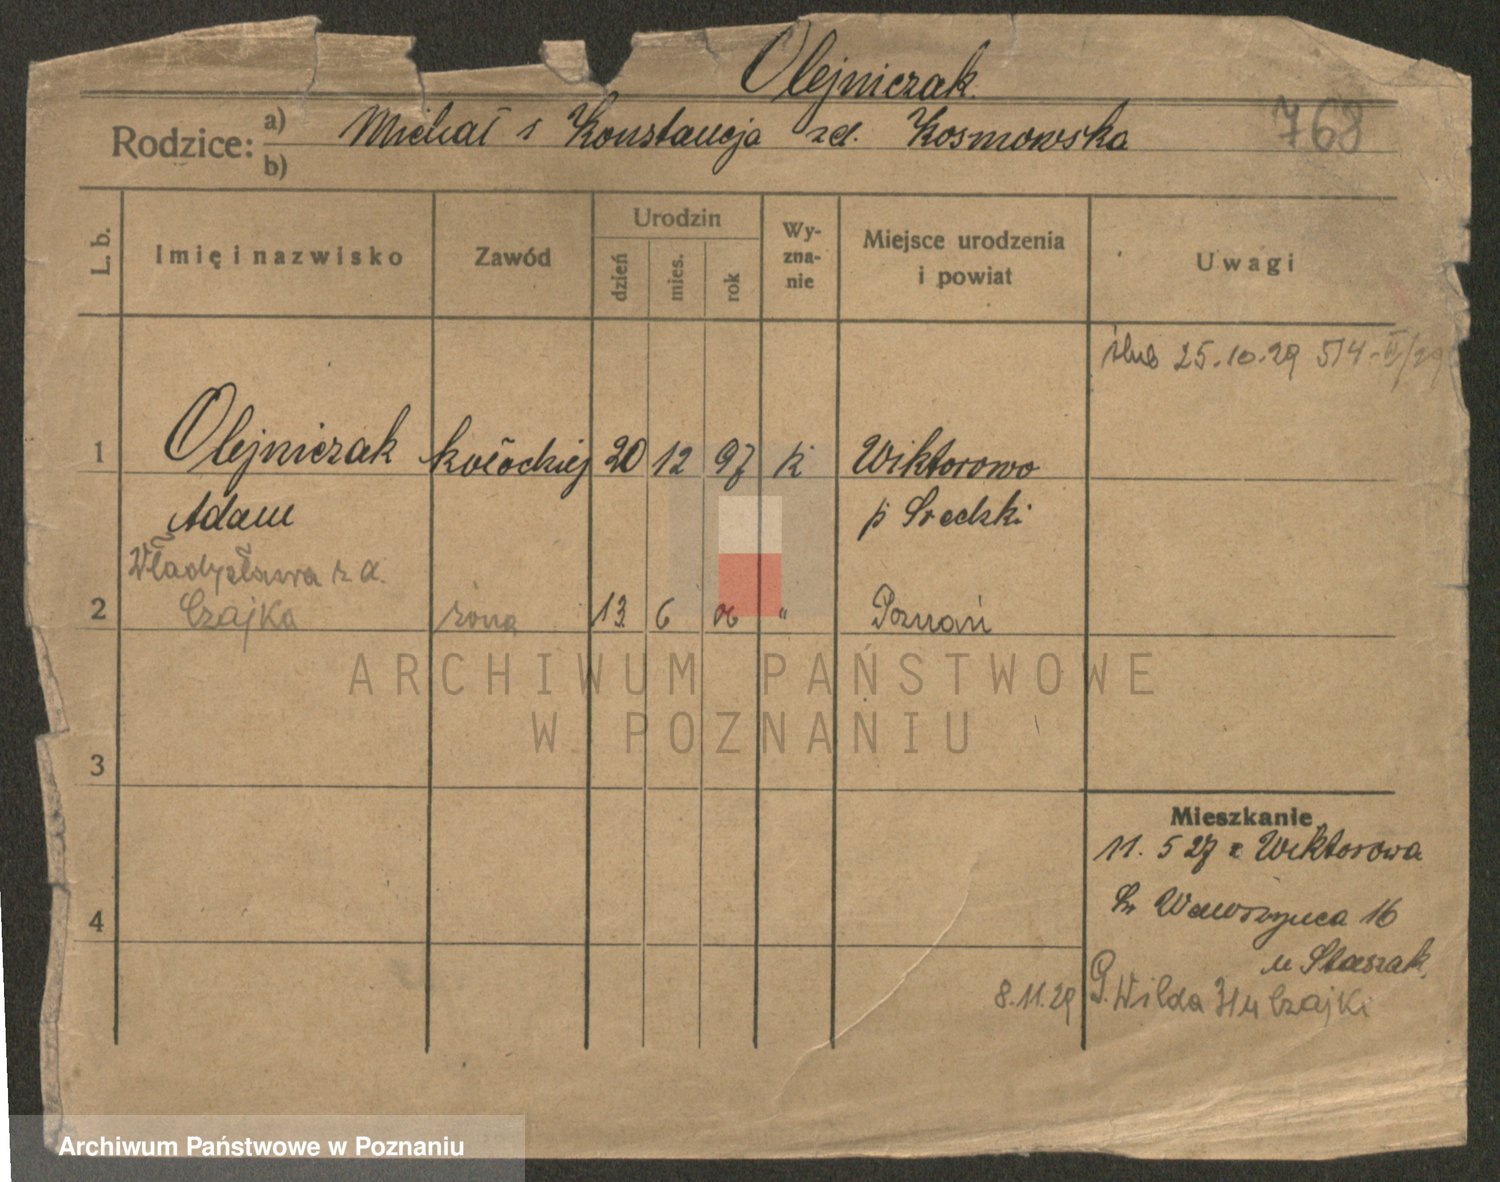 Olejniczak
Rodzice: a) Michał i Konstancja zd. Kosmowska 768
b)
L. b. Imię i nazwisko Zawód Urodzin dzień mies. rok Wy-zna-nie Miejsce urodzenia i powiat Uwagi
ślub 25.10.29 514-III/29
1 Olejniczak kołodziej 20 12 97 k Wiktorowo
Adam p Średzki
Władysława z d.
2 Czajka żona 13 6 " Poznań
3
Mieszkanie
11. 5 27 z Wiktorowa
4 Św Wawrzyńca 16
u Staszak
8.11.29 G. Wilda u Czajki
ARCHIWUM PAŃSTWOWE
W POZNANIU
Archiwum Państwowe w Poznaniu